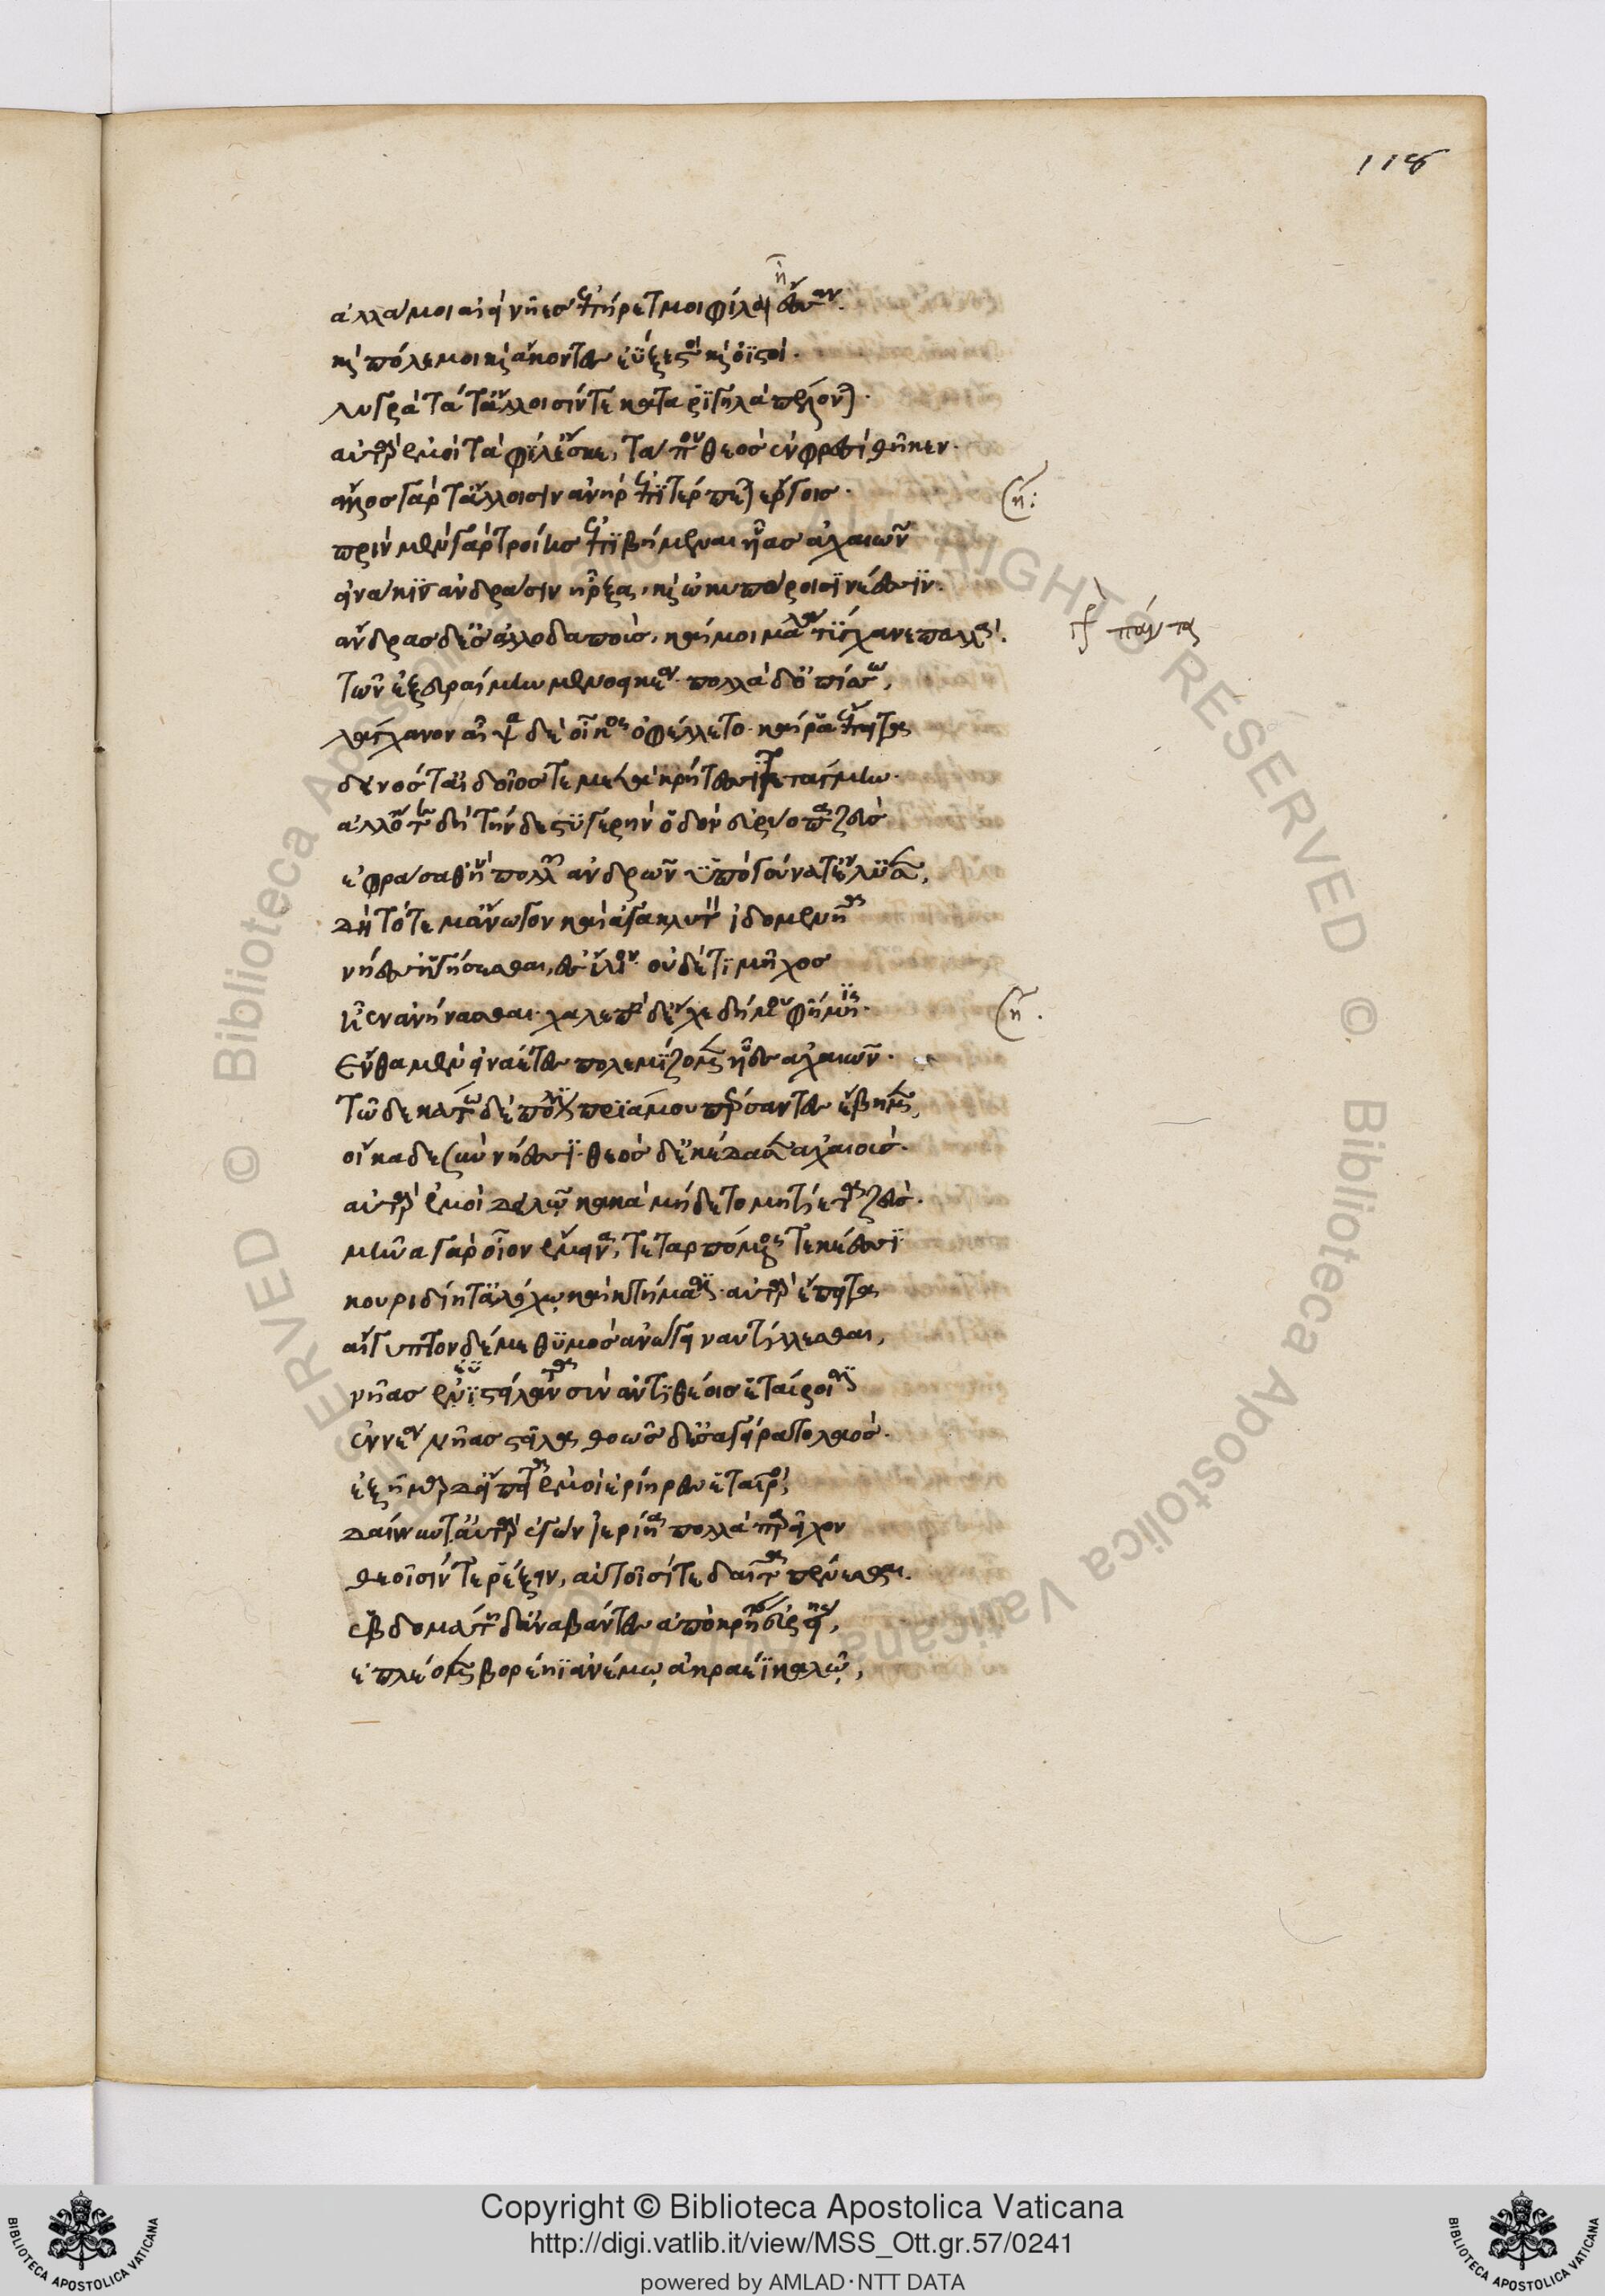 118
ἀλλά μοι αἰεὶ νῆες ἐπήρετμοι φίλαι ἦσαν.
καὶ πόλεμοι καὶ ἄκοντες ἐΰξεστοι καὶ ὀϊστοί.
λυγρὰ τά τ' ἄλλοισίν τε καταριγηλὰ πέλονται.
αὐτὰρ ἐμοὶ τὰ φίλ' ἔσκε, τά που θεὸς ἐν φρεσὶ θῆκεν.
ἄλλος γάρ τ' ἄλλοισιν ἀνὴρ ἐπιτέρπεται ἔργοις.
πρὶν μὲν γὰρ τροίης ἐπιβήμεναι υἷας ἀχαιῶν
εἰνάκις ἀνδράσιν ἦρξα, καὶ ὠκυπόροισι νέεσσιν.
ἄνδρας ἐς ἀλλοδαπούς, καί μοι μάλα τύγχανε πολλά.
πάντα
τῶν ἐξαιρεύμην μενοεικέα πολλὰ δ' ὀπίσσω,
λάγχανον αἶψα δὲ οἶκος ὀφέλλετο καί ῥα ἔπειτα
δεινός τ' αἰδοῖός τε μετὰ κρήτεσσι τετύγμην.
ἀλλ' ὅτε δὴ τήνδε στυγερὴν ὁδὸν εὐρύοπα ζεὺς
ἐφράσαθ' ἣ πολλῶν ἀνδρῶν ὑπὸ γούνατ' ἔλυσε,
δὴ τότε μ' ἄνωγον καὶ ἀγακλυτὸν ἰδομενῆα
νήεσσ' ἡγήσασθαι, ἐς ἴλιον οὐδέ τι μῆχος
ἦεν ἀνήνασθαι χαλεπὴ δ' ἔχε δήμου φῆμις.
ἔνθα μὲν εἰνάετες πολεμίζομεν υἷες ἀχαιῶν.
τῷ δεκάτῳ δὲ πόλιν πριάμου πέρσαντες ἔβημεν,
οἴκαδε σὺν νήεσσι θεὸς δ' ἐκέδασσεν ἀχαιούς.
αὐτὰρ ἐμοὶ δειλῷ κακὰ μήδετο μητίετα ζεύς.
μῆνα γὰρ οἶον ἔμεινα, τεταρπόμενος τεκέεσσι
κουριδίῃ τ' ἀλόχῳ καὶ κτήμασιν αὐτὰρ ἔπειτα
αἴγυπτον δέ με θυμὸς ἀνώγει ναυτίλλεσθαι,
νῆας ἐϋ στείλαντα σὺν ἀντιθέοις ἑτάροισιν
ἐννέα νῆας στεῖλα θοῶς δ' ἐσαγείρατο λαός.
ἑξῆμαρ δ' ἔπειτα ἐμοὶ ἐρίηρες ἑταῖροι
δαίνυντ' αὐτὰρ ἐγὼν ἱερήϊα πολλὰ παρεῖχον
θεοῖσίν τε ῥέζειν, αὐτοῖσί τε δαῖτα πένεσθαι.
ἑβδομάτῃ δ' ἀναβάντες ἀπὸ κρήτης εὐρείης,
ἐπλέομεν βορέῃ ἀνέμῳ ἀκραέϊ καλῷ,
Copyright © Biblioteca Apostolica Vaticana
http://digi.vatlib.it/view/MSS_Ott.gr.57/0241
powered by AMLAD·NTT DATA